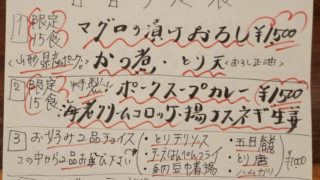 1 限定15食 マグロの漬けおろし ¥1,500
<山形県産ポーク> かつ煮・とり天(おろし正油)
2 限定15食 特製 ポークスープカレー ¥1,500
海老クリームコロッケ・揚げナスネギ生姜
3 お好み2品チョイス
この中から2品お選び下さい
・とり天ソース
・天ぷら はんぺんフライ
・納豆巾着揚
・五目
・とり唐
・ハムカツ
¥1000